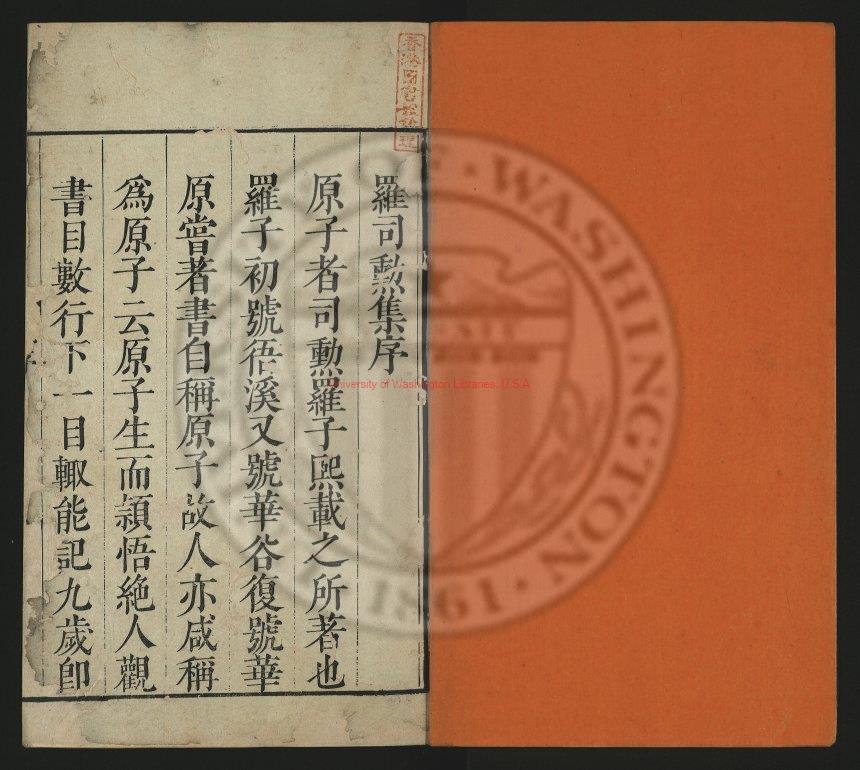 羅司勲集序
原子者司勲羅子熙載之所著也
羅子初號徣溪又號華谷復號華
原甞著書自稱原子故人亦咸稱
為原子云原子生而頴悟絶人觀
書目數行下一目輙能記九歲卽
University of Washington Libraries, U.S.A
OF · WASHINGTON · 1861 ·